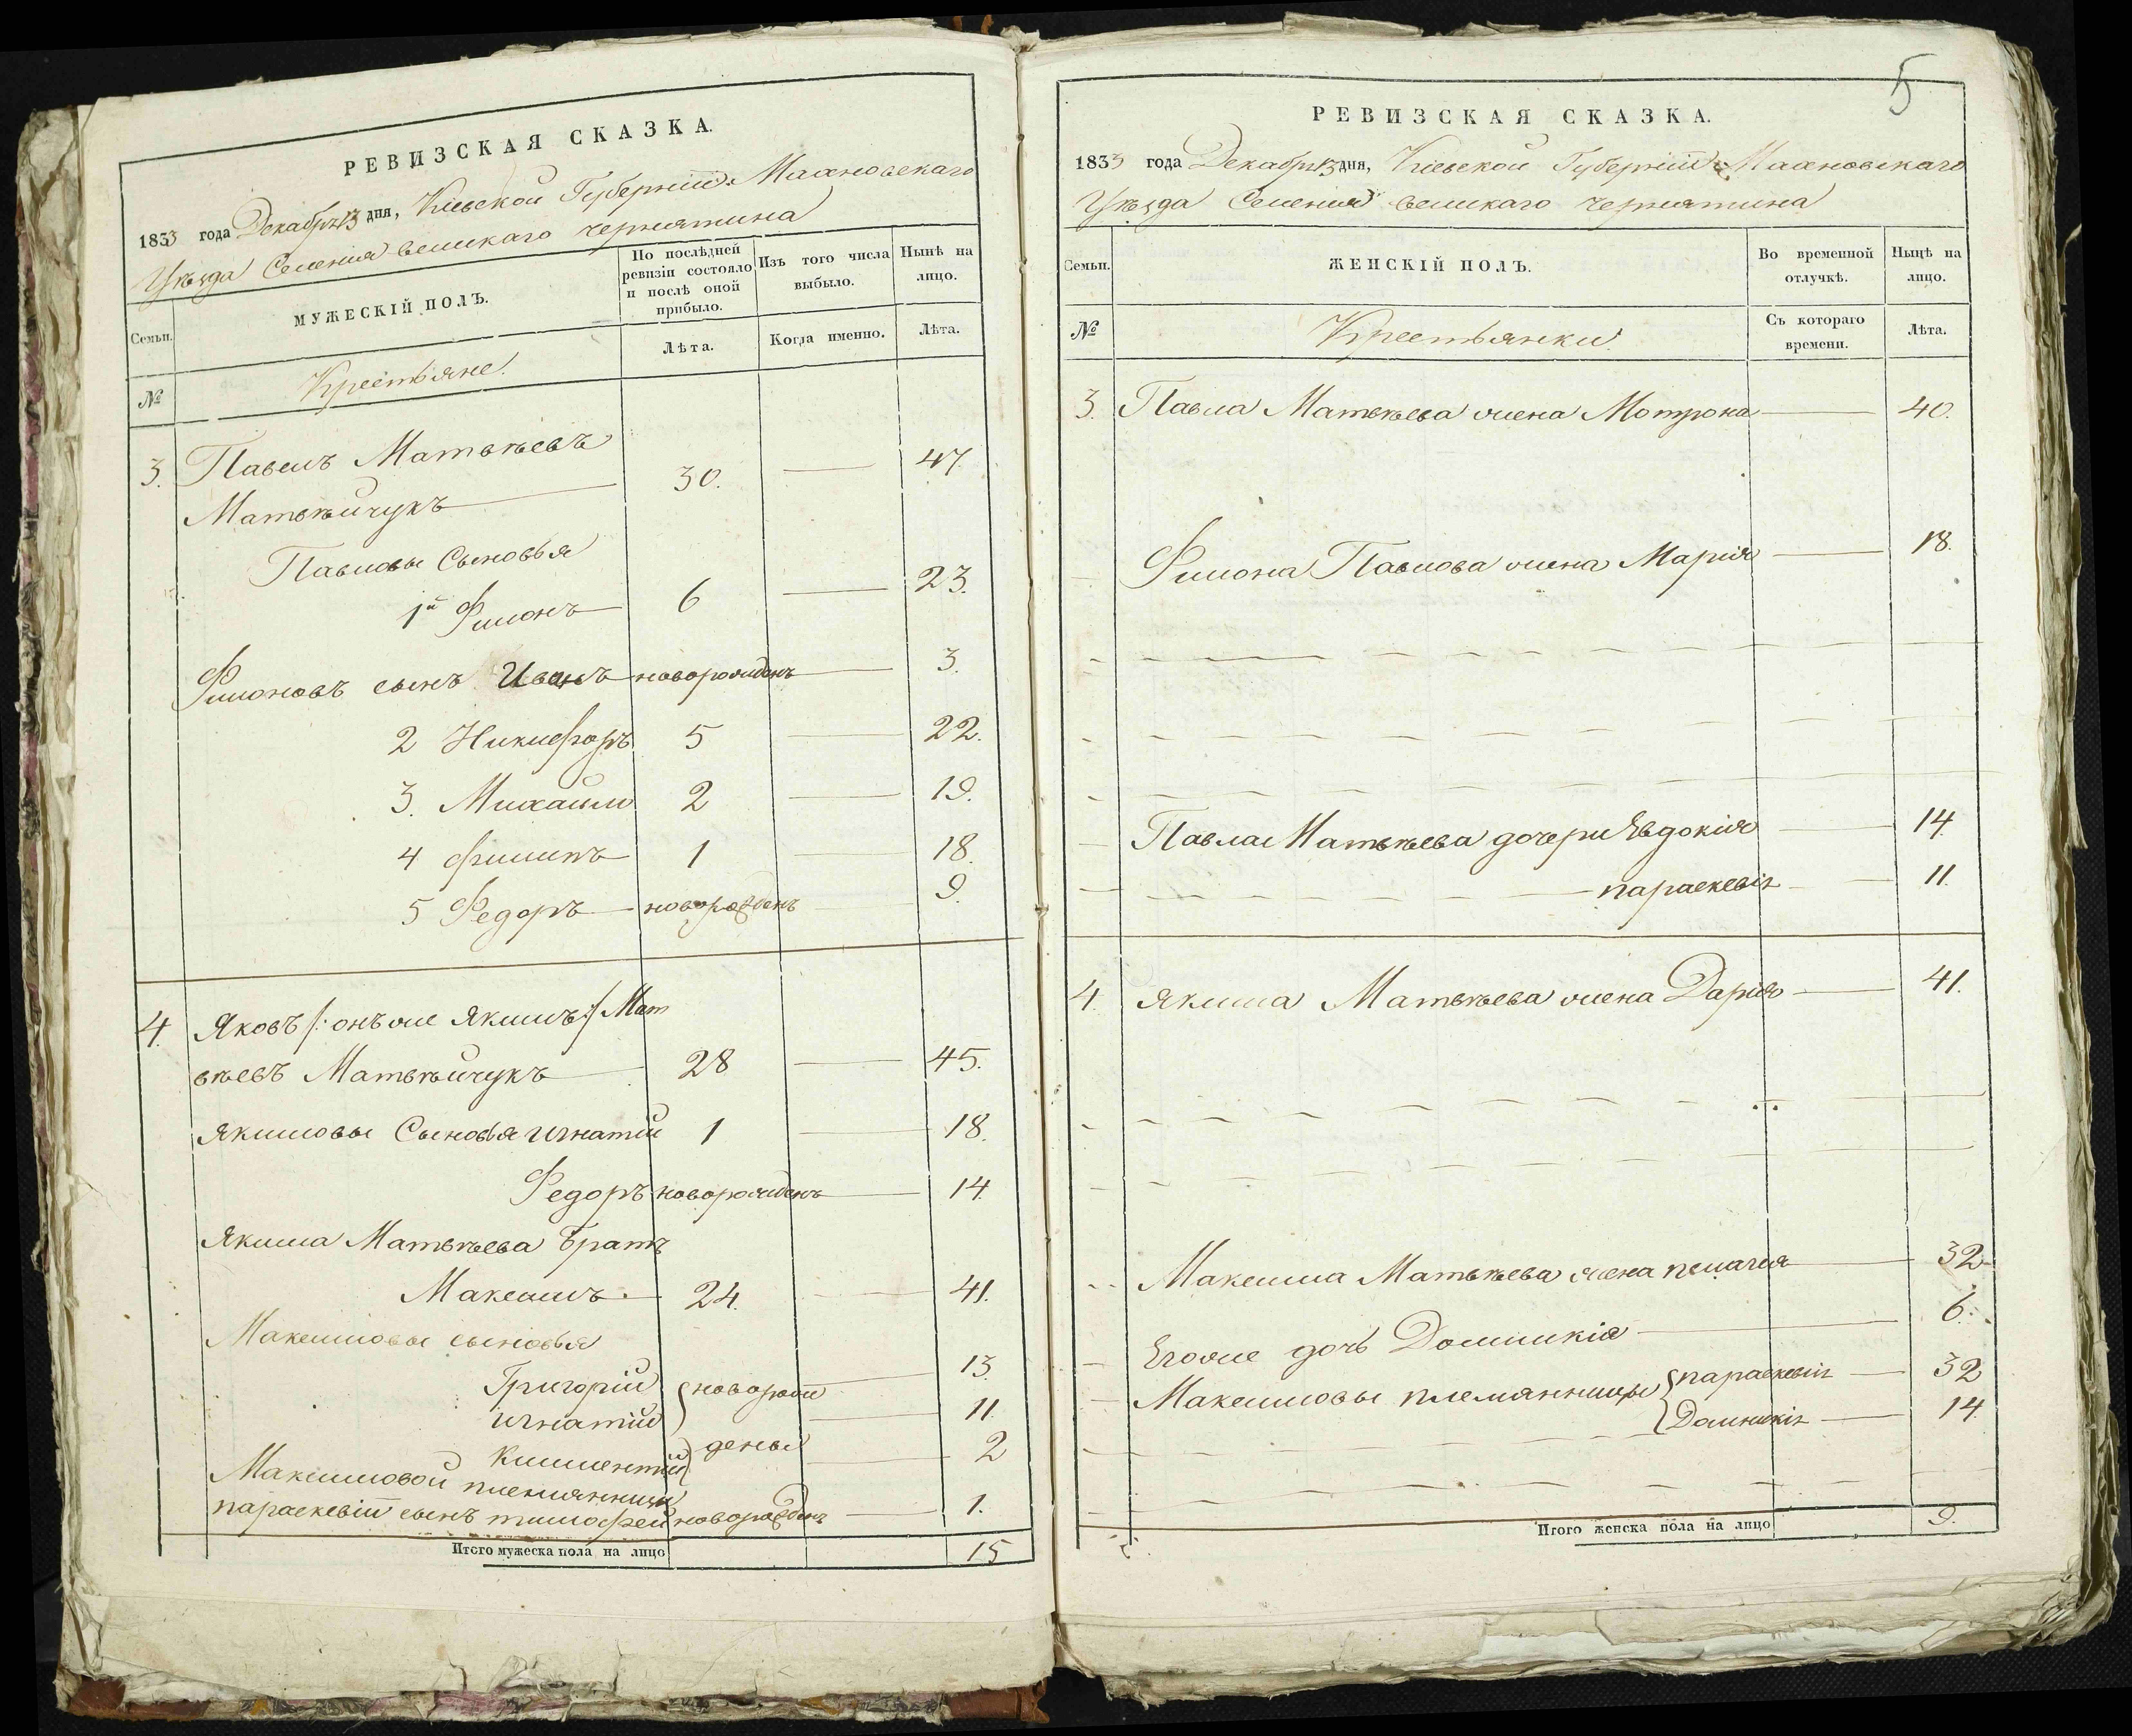 РЕВИЗСКАЯ СКАЗКА.
1833 года Декабря 13 дня, Кіевской Губерніи Махновскаго
Уѣзда Селенія великаго чернятина
Семьи.
МУЖЕСКІЙ ПОЛЪ.
По послѣдней
ревизіи состояло
и послѣ оной
прибыло.
Изъ того числа
выбыло.
Нынѣ на
лицо.
№
Крестьяне.
Лѣта.
Когда именно.
Лѣта.
3. Павелъ Матвѣевъ
Матвѣйчукъ 30. 47.
Павловы Сыновья
1й Филонъ 6 23.
Филоновъ сынъ Иванъ новорожденъ 3.
2 Никифоръ 5 22.
3. Михаилъ 2 19.
4 филипъ 1 18.
5 Федоръ новорожденъ 9.
4. Яковъ /: онъ же Якимъ :/ Мат
вѣевъ Матвѣйчукъ 28 45.
Якимовы Сыновья игнатій 1 18.
Федоръ новорожденъ 14.
Якима Матвѣева братъ
Максимъ. 24. 41.
Максимовы сыновья
Григорій новорож 13.
игнатій 11.
Климентій дены 2
Максимовой племянницы
параскевіи сынъ тимофей новорожденъ 1.
Итого мужеска пола на лицо 15
5
РЕВИЗСКАЯ СКАЗКА.
1833 года Декабря 13 дня, Кіевской Губерніи Махновскаго
Уѣзда Селенія великаго чернятина
Семьи.
ЖЕНСКІЙ ПОЛЪ.
Во временной
отлучкѣ.
Нынѣ на
лицо.
№
Крестьянки.
Съ котораго
времени.
Лѣта.
3. Павла Матвѣева жена Мотрона 40.
Филона Павлова жена Марія 18.
Павла Матвѣева дочери Явдокія 14.
параскевія 11.
4. Якима Матвѣева жена Дарія 41.
Максима Матвѣева жена пелагея 32.
Егоже дочь Домникія 6.
Максимовы племянницы параскевія 32
Домникія 14.
Итого женска пола на лицо 9.